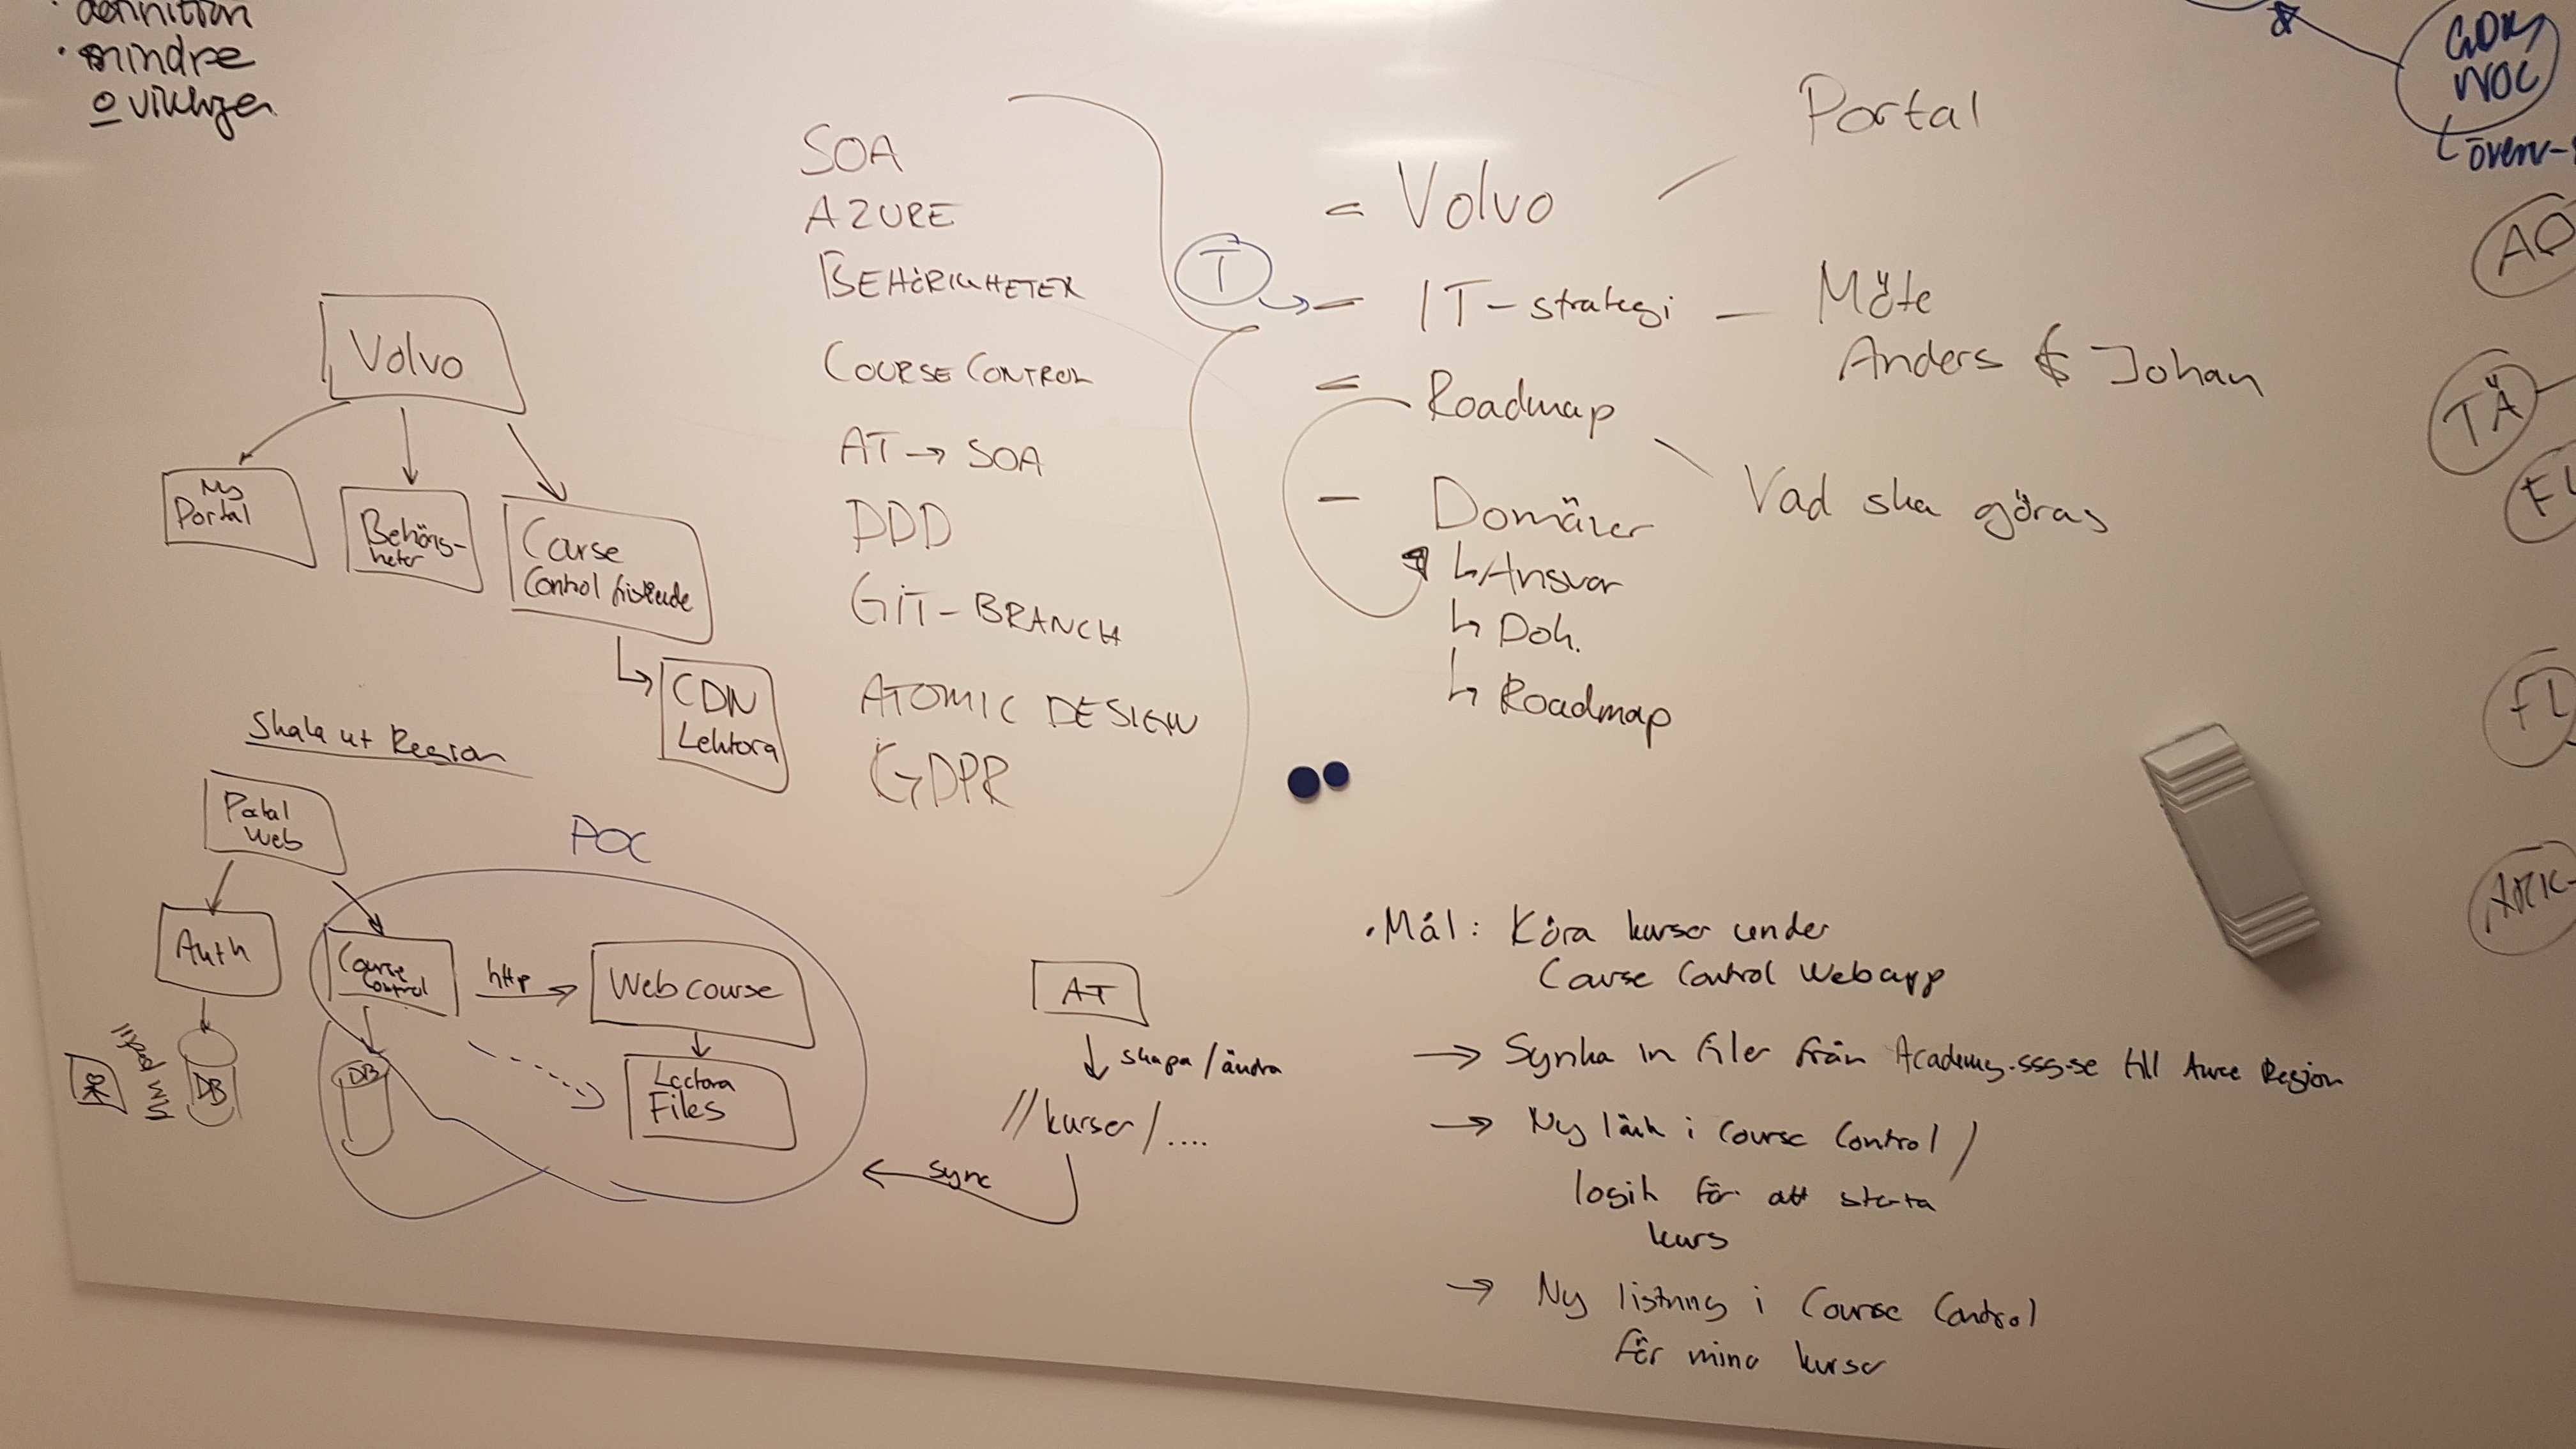 definition
· mindre
o viktigen
Volvo
My
Portal
Behörig-
heter
Course
Control
CDN
Lektora
Skala ut Region
Portal
Web
Auth
DB
POC
Course
Control
http
Web course
DB
Lectora
Files
AT
skapa/ändra
//kurser/....
sync
SOA
AZURE
BEHÖRIGHETER
COURSE CONTROL
AT → SOA
DDD
GIT-BRANCH
ATOMIC DESIGN
GDPR
T
- Volvo / Portal
- IT-strategi - Möte
Anders & Johan
- Roadmap \ Vad ska göras
- Domäner
↳ Ansvar
↳ Dok.
↳ Roadmap
· Mål: Köra kurser under
Course Control Webapp
→ Synka in filer från Academy.ssg.se till Region
→ Ny länk i Course Control /
logik för att starta
kurs
→ Ny listning i Course Control
för mina kurser
TÄ
FL
ARK-